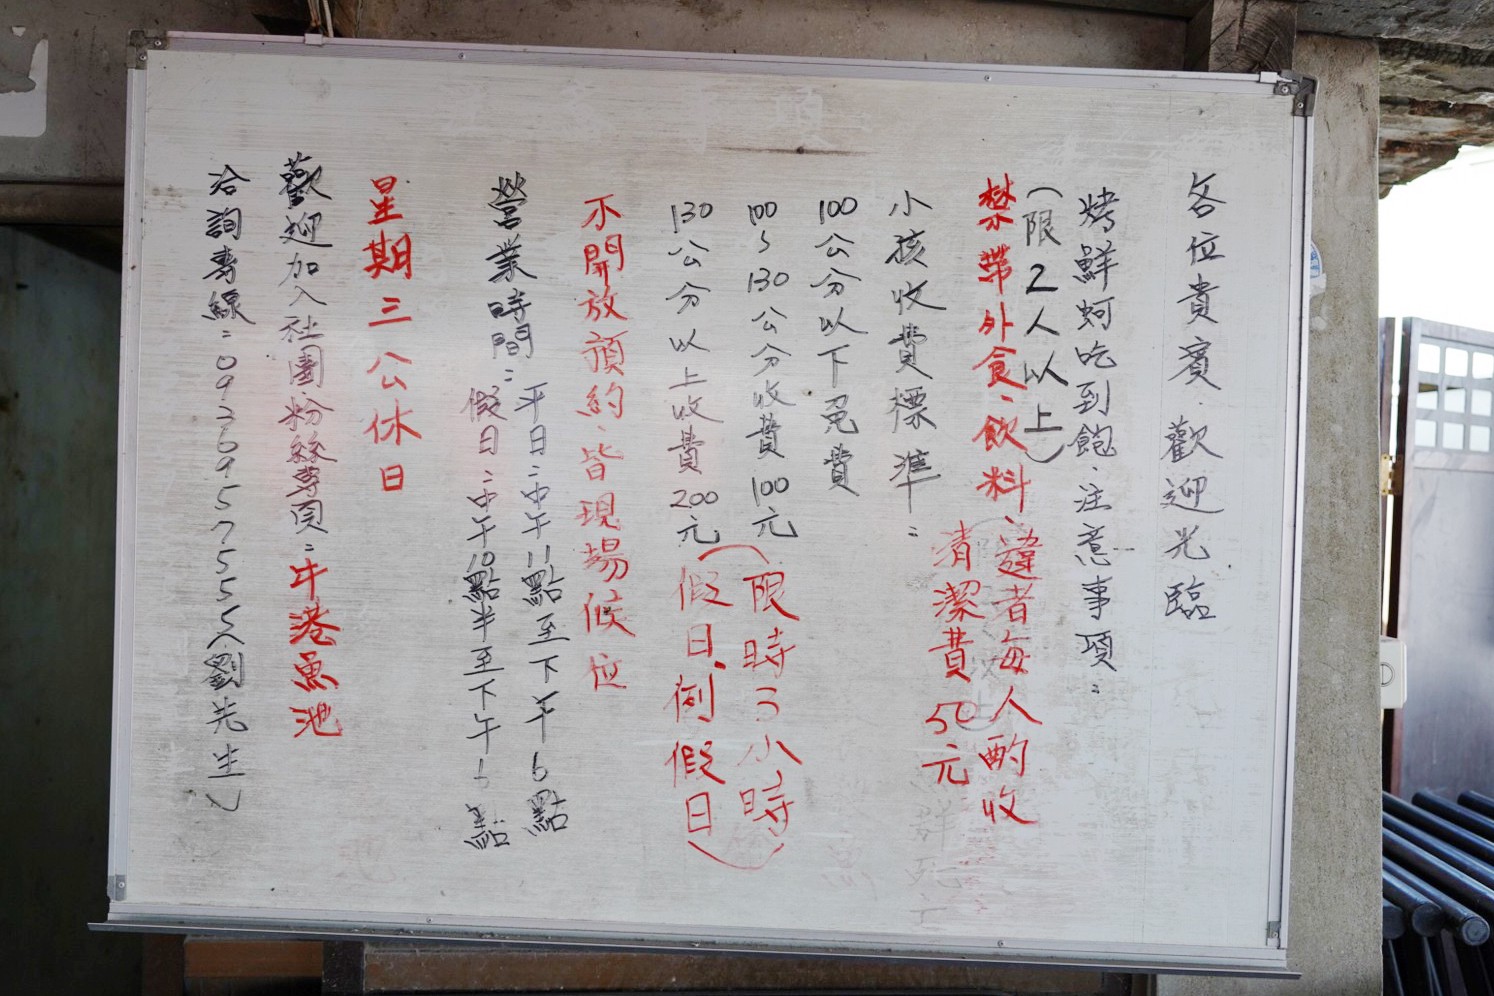 各位貴賓．歡迎光臨
烤鮮蚵吃到飽．注意事項：
（限2人以上）
禁帶外食、飲料、違者每人酌收
清潔費50元
小孩收費標準：
100公分以下免費
100～130公分收費100元
130公分以上收費200元
（限時3小時
假日.例假日）
不開放預約．皆現場候位
營業時間：
平日：中午11點至下午6點
假日：中午10點半至下午 點
星期三公休日
歡迎加入社團.粉絲專頁：牛港魚池
洽詢專線：0936957555（劉先生）